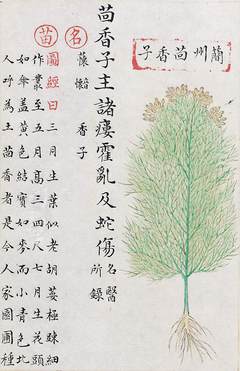 簡州茴香子
茴香子主諸瘻霍亂及蛇傷 名醫所錄
名
香子
苗
圖經曰三月生葉似老胡荽極踈細
作叢至五月高三四尺七月生花頭
如傘蓋黃色結實如麥而小青色北
人呼為土茴香者是今人家園圃種